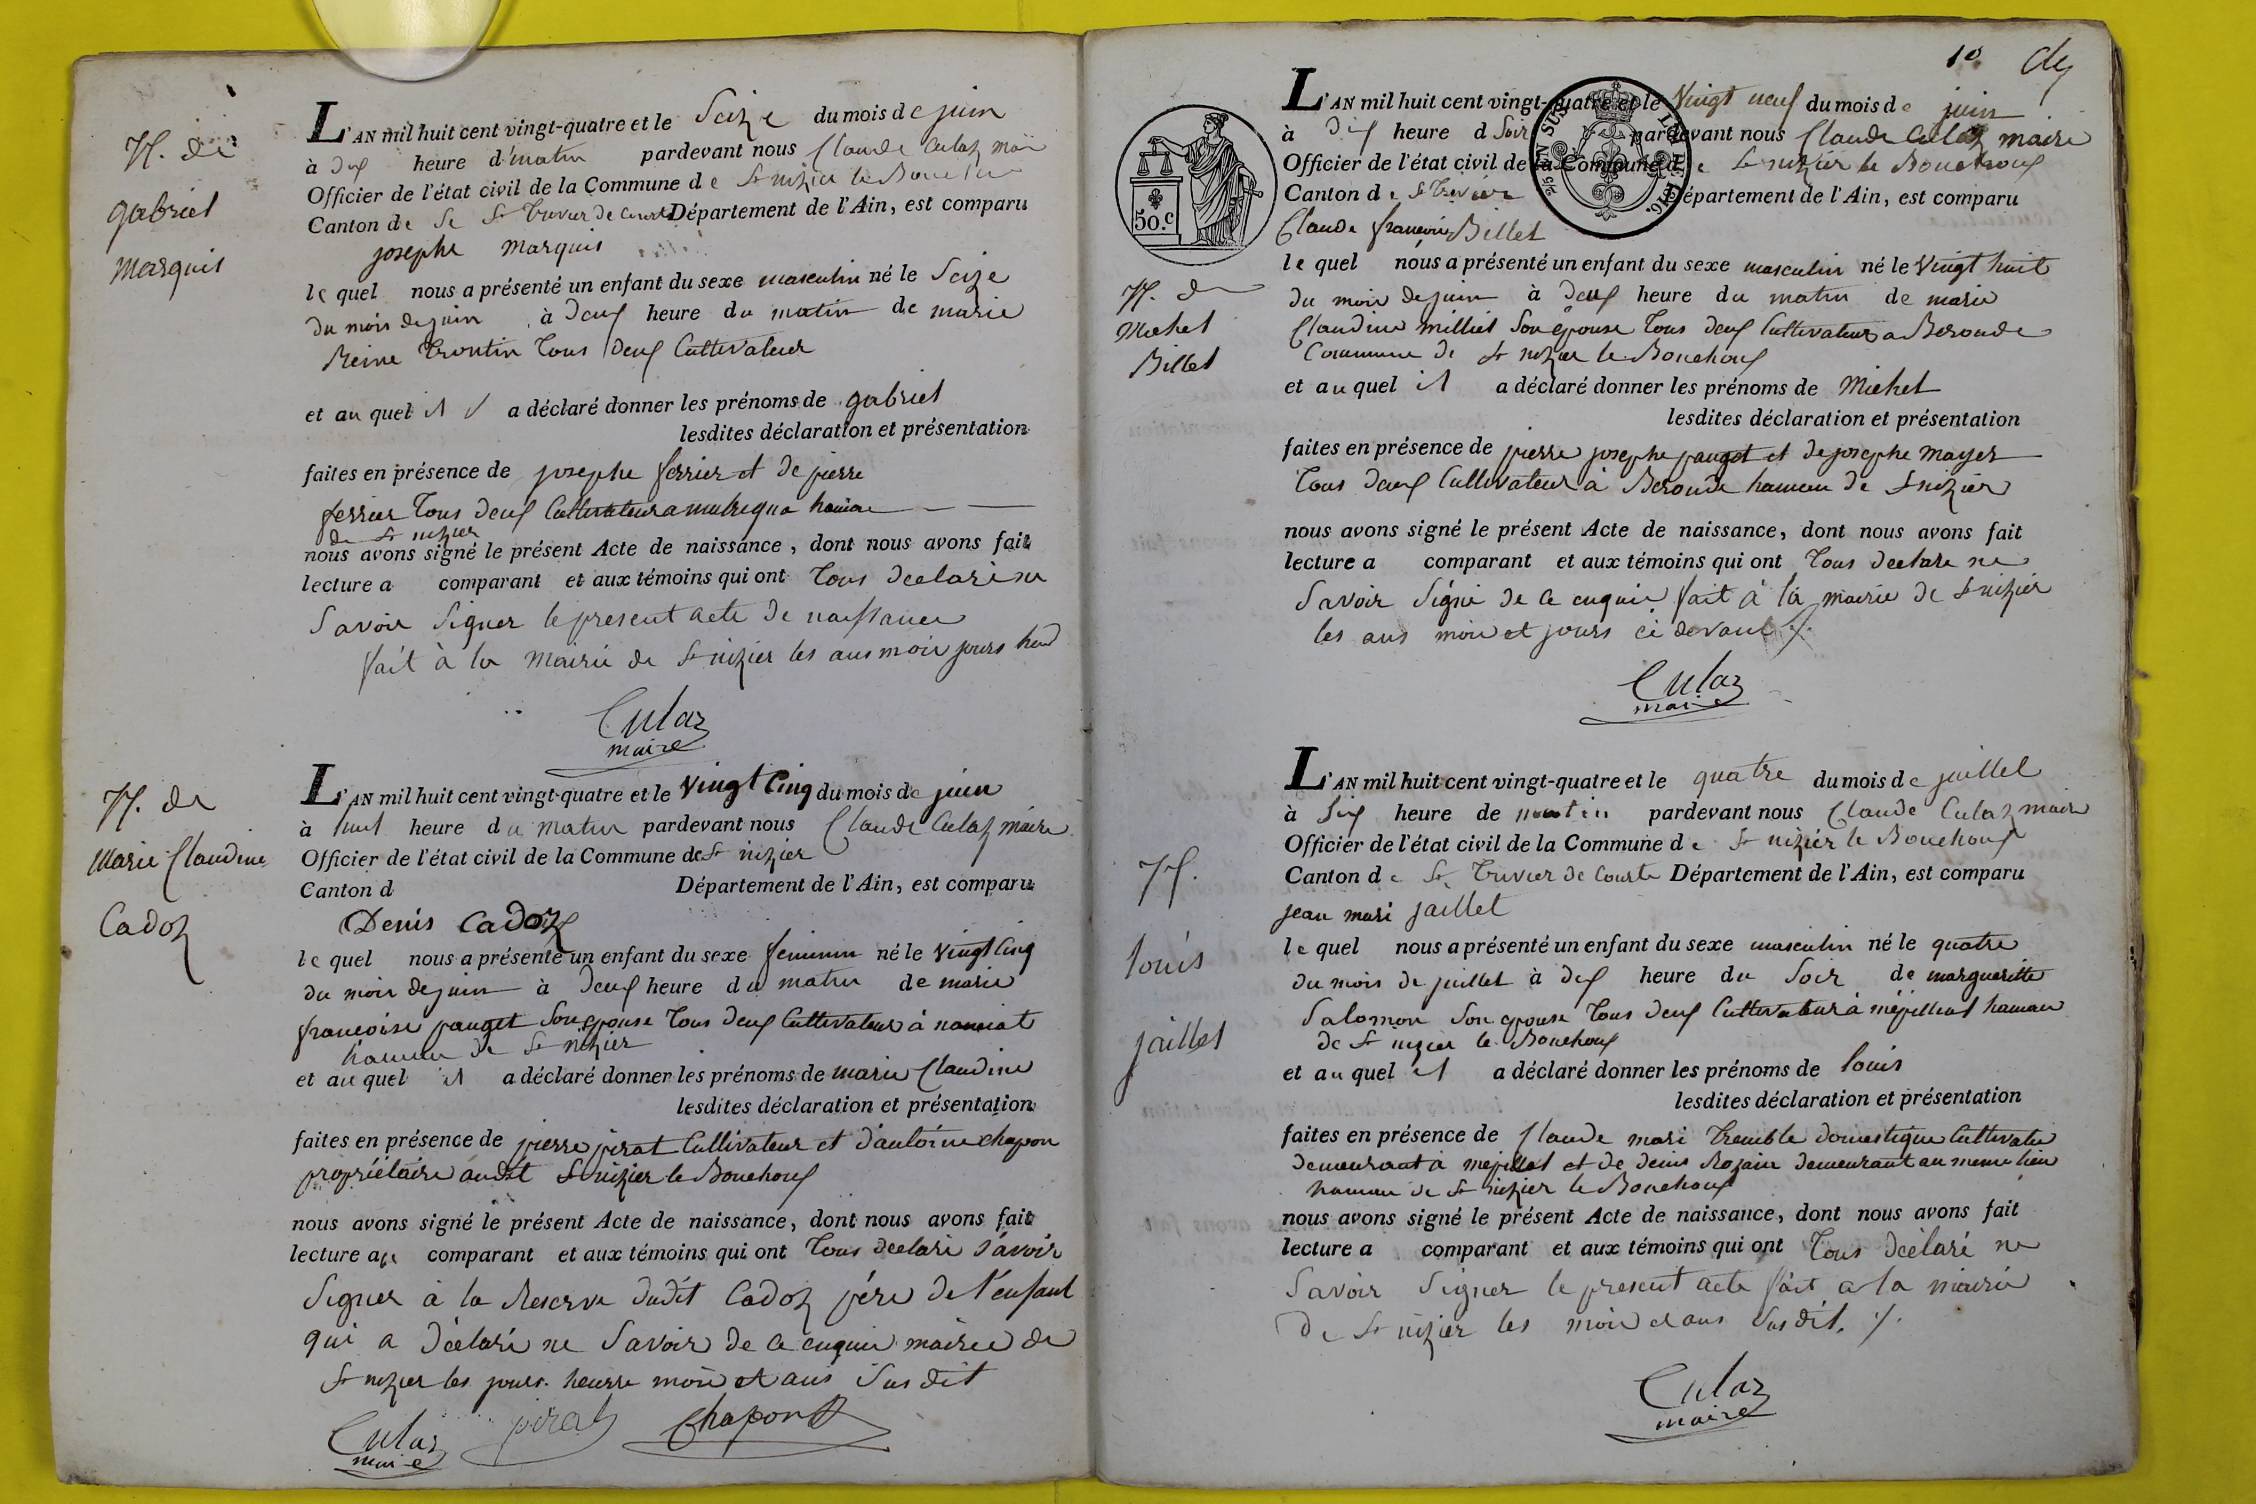 N. de
gabriel
marquis
L'AN mil huit cent vingt-quatre et le Seize du mois de juin
à dix heure d'matin pardevant nous Claude Culaz mair
Officier de l'état civil de la Commune de St nizier le Bouchoux
Canton de St Trivier de Courte Département de l'Ain, est comparu
josephe marquis
le quel nous a présenté un enfant du sexe masculin né le Seize
du mois de juin à deux heure du matin de marie
Reine trontin tous deux Cultivateur
et au quel il a déclaré donner les prénoms de gabriel
lesdites déclaration et présentation
faites en présence de josephe ferrier et de pierre
ferrier tous deux Cultivateur a hamau
de St nizier
nous avons signé le présent Acte de naissance, dont nous avons fait
lecture a comparant et aux témoins qui ont tous declaré ne
Savoir Signer le present acte de naissance
fait à la Mairie de St nizier les ans moi jours
Culaz
maire
N. de
Marie Claudine
Cadoz
L'AN mil huit cent vingt-quatre et le Vingt Cinq du mois de juin
à huit heure du matin pardevant nous Claude Culaz maire
Officier de l'état civil de la Commune de St nizier
Canton d Département de l'Ain, est comparu
Denis Cadoz
le quel nous a présenté un enfant du sexe feminin né le Vingt Cinq
du moi de juin à deux heure du matin de marie
francoise pauget Son epouse tous deux Cultivateur à
hamau de St nizier
et au quel il a déclaré donner les prénoms de marie Claudine
lesdites déclaration et présentation
faites en présence de pierre pirat Cultivateur et d'antoine chapon
propriétaire audit St nizier le Bouchoux
nous avons signé le présent Acte de naissance, dont nous avons fait
lecture au comparant et aux témoins qui ont tous declaré savoir
Signer à la Reserve dudit Cadoz pére de l'enfant
qui a déclaré ne Savoir de ce enquis mairie de
St nizier les jours heurre moi et ans Sus dit
Culaz
maire
pirat
Chapon
10
L'AN mil huit cent vingt-quatre et le Vingt neuf du mois de juin
à dix heure d Soir pardevant nous Claude Culaz maire
Officier de l'état civil de la Commune de St nizier le Bouchoux
Canton de St Trivier Département de l'Ain, est comparu
50.c
Claude francois Billet
le quel nous a présenté un enfant du sexe masculin né le Vingt huit
du moi de juin à deux heure du matin de marie
Claudine milliet Son épouse tous deux Cultivateur a Beronde
Commune de St nizier le Bouchoux
N. de
Michel
Billet
et au quel il a déclaré donner les prénoms de Michel
lesdites déclaration et présentation
faites en présence de pierre josephe pauget et de josephe mayer
tous deux Cultivateur à Beronde hamau de St nizier
nous avons signé le présent Acte de naissance, dont nous avons fait
lecture a comparant et aux témoins qui ont tous declare ne
Savoir Signé de ce enquis fait à la mairie de St nizier
les ans moi et jours ci devant
Culaz
maire
N.
louis
jaillet
L'AN mil huit cent vingt-quatre et le quatre du mois de juillet
à Six heure de matin pardevant nous Claude Culaz mair
Officier de l'état civil de la Commune de St nizier le Bouchoux
Canton de St Trivier de Courte Département de l'Ain, est comparu
jean mari jaillet
le quel nous a présenté un enfant du sexe masculin né le quatre
du mois de juillet à dix heure du Soir de margueritte
Salomon Son epouse tous deux Cultivateur à mépilliat hamau
de St nizier le Bouchoux
et au quel il a déclaré donner les prénoms de louis
lesdites déclaration et présentation
faites en présence de Claude mari tremble domestique Cultivateu
demeurant à mepillat et de denis Rozain demeurant au meme lieu
hamau de St nizier le Bouchoux
nous avons signé le présent Acte de naissance, dont nous avons fait
lecture a comparant et aux témoins qui ont tous déclaré ne
Savoir Signer le present acte fait a la mairie
de St nizier les moi et ans Sus dit.
Culaz
maire